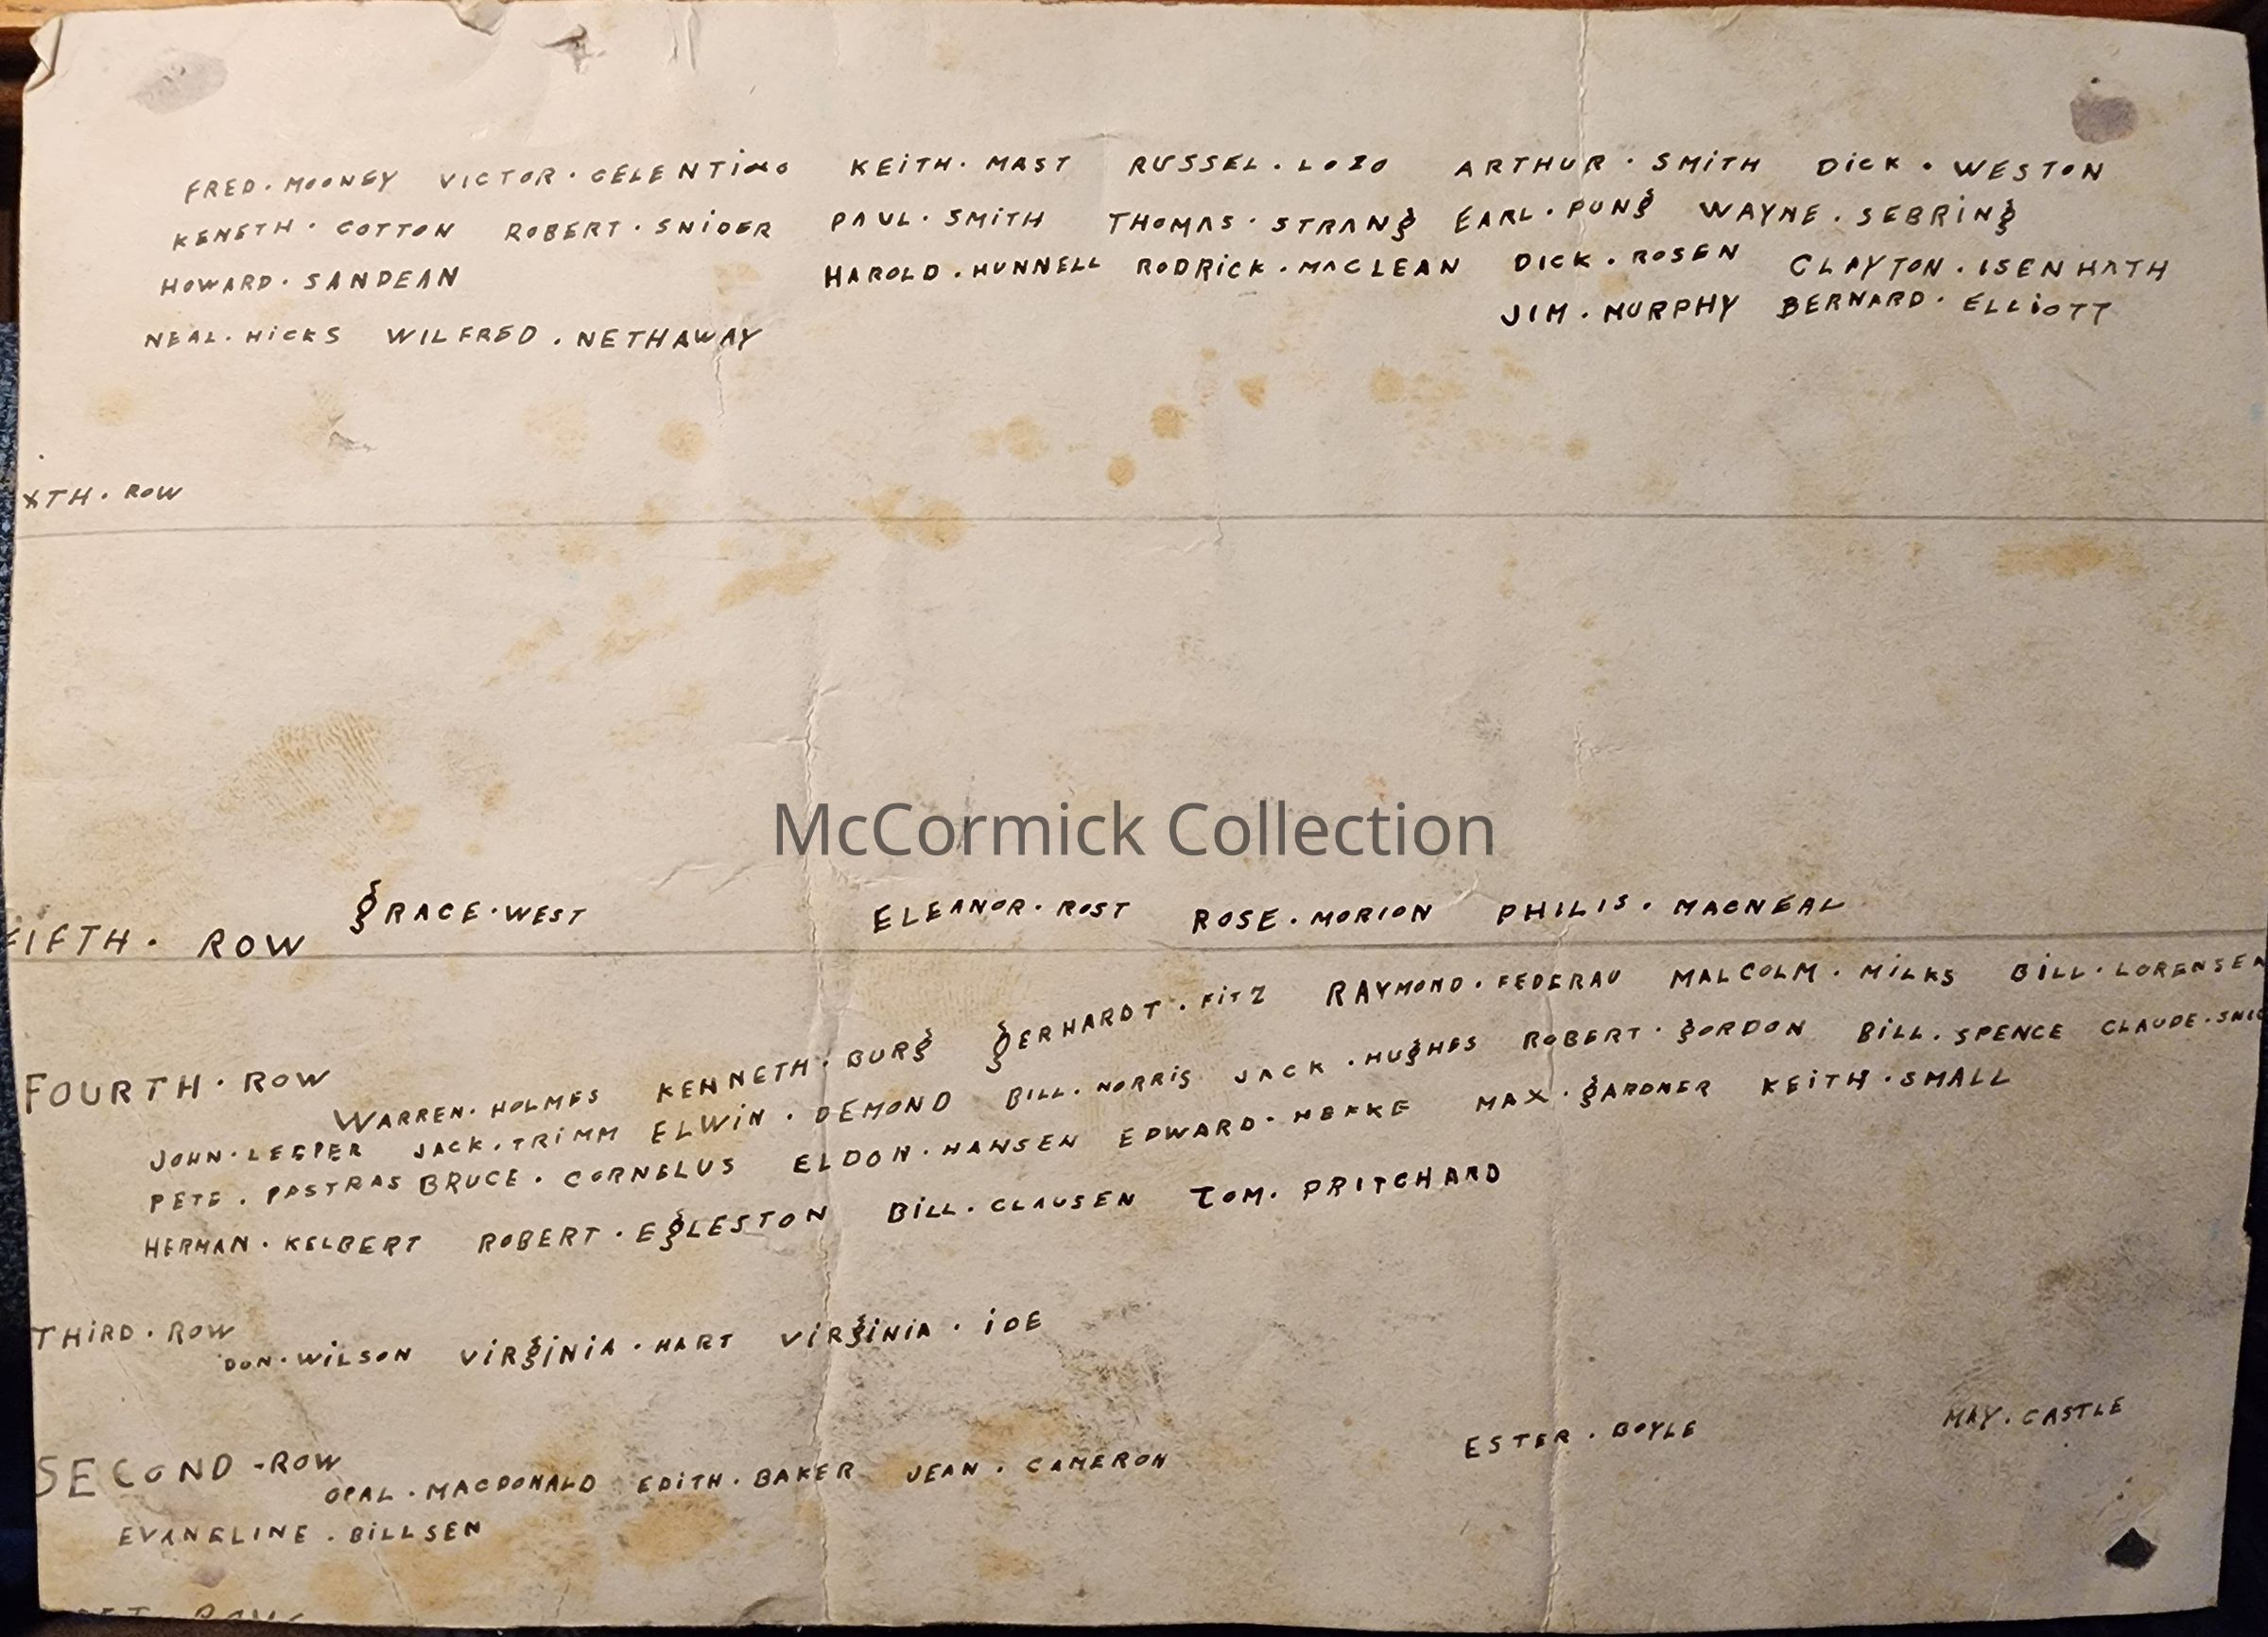 FRED. MOONEY VICTOR. CELENTINO KEITH. MAST RUSSEL. LOZO ARTHUR. SMITH DICK. WESTON
KENETH. COTTON ROBERT. SNIDER PAUL. SMITH THOMAS. STRANG EARL. PUNG WAYNE. SEBRING
HOWARD. SANDEAN HAROLD. HUNNELL RODRICK. MACLEAN DICK. ROSEN CLAYTON. ISENHATH
JIM. MURPHY BERNARD. ELLIOTT
NEAL. HICKS WILFRED. NETHAWAY
XTH. ROW
McCormick Collection
FIFTH. ROW GRACE. WEST ELEANOR. ROST ROSE. MORION PHILIS. MACNEAL
FOURTH. ROW
WARREN. HOLMES KENNETH. BURG GERHARDT. FITZ RAYMOND. FEDERAU MALCOLM. MILKS BILL. LORENSEN
JOHN. LEEPER JACK. TRIMM ELWIN. DEMOND BILL. NORRIS JACK. HUGHES ROBERT. GORDON BILL. SPENCE CLAUDE.
PETE. PASTRAS BRUCE. CORNELUS ELDON. HANSEN EDWARD. MAX. GARDNER KEITH. SMALL
HERMAN. KELBERT ROBERT. EGLESTON BILL. CLAUSEN TOM. PRITCHARD
THIRD. ROW
DON. WILSON VIRGINIA. HART VIRGINIA. IDE
SECOND - ROW
OPAL. MACDONALD EDITH. BAKER JEAN. CAMERON ESTER. BOYLE MAY. CASTLE
EVANELINE. BILLSEN